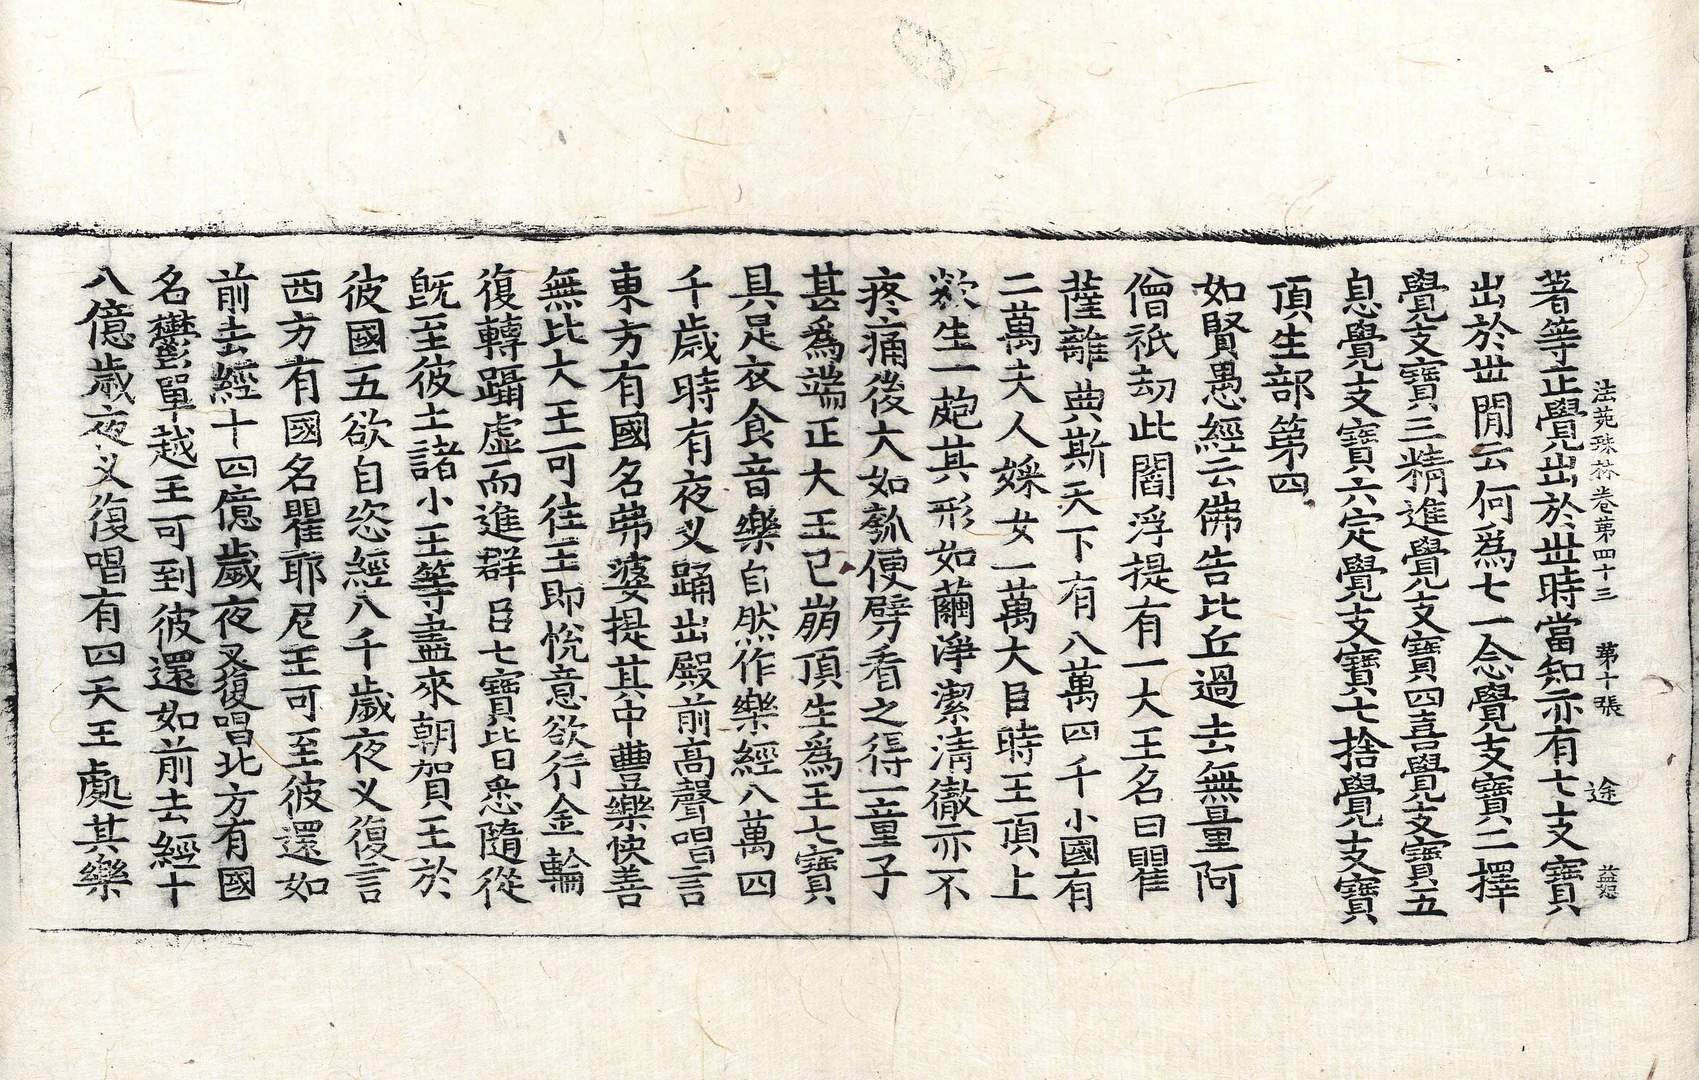 法苑珠林卷第四十三 第十張 途
著等正覺出於世時當知亦有七支寶
出於世閒云何爲七一念覺支寶二擇
覺支寶三精進覺支寶四喜覺支寶五
息覺支寶六定覺支寶七捨覺支寶
頂生部第四
如賢愚經云佛告比丘過去無量阿
僧祇劫此閻浮提有一大王名曰瞿
薩離典斯天下有八萬四千小國有
二萬夫人婇女一萬大臣時王頂上
欻生一皰其形如繭淨潔清徹亦不
疼痛後大如瓠便劈看之得一童子
甚爲端正大王已崩頂生爲王七寶
具足衣食音樂自然作樂經八萬四
千歲時有夜叉踊出殿前高聲唱言
東方有國名弗婆提其中豊樂快善
無比大王可往王即悅意欲行金輪
復轉躡虛而進群臣七寶皆悉隨從
旣至彼土諸小王等盡來朝賀王於
彼國五欲自恣經八千歲夜叉復言
西方有國名瞿耶尼王可至彼還如
前去經十四億歲夜叉復唱北方有國
名鬱單越王可到彼還如前去經十
八億歲夜叉復唱有四天王處其樂